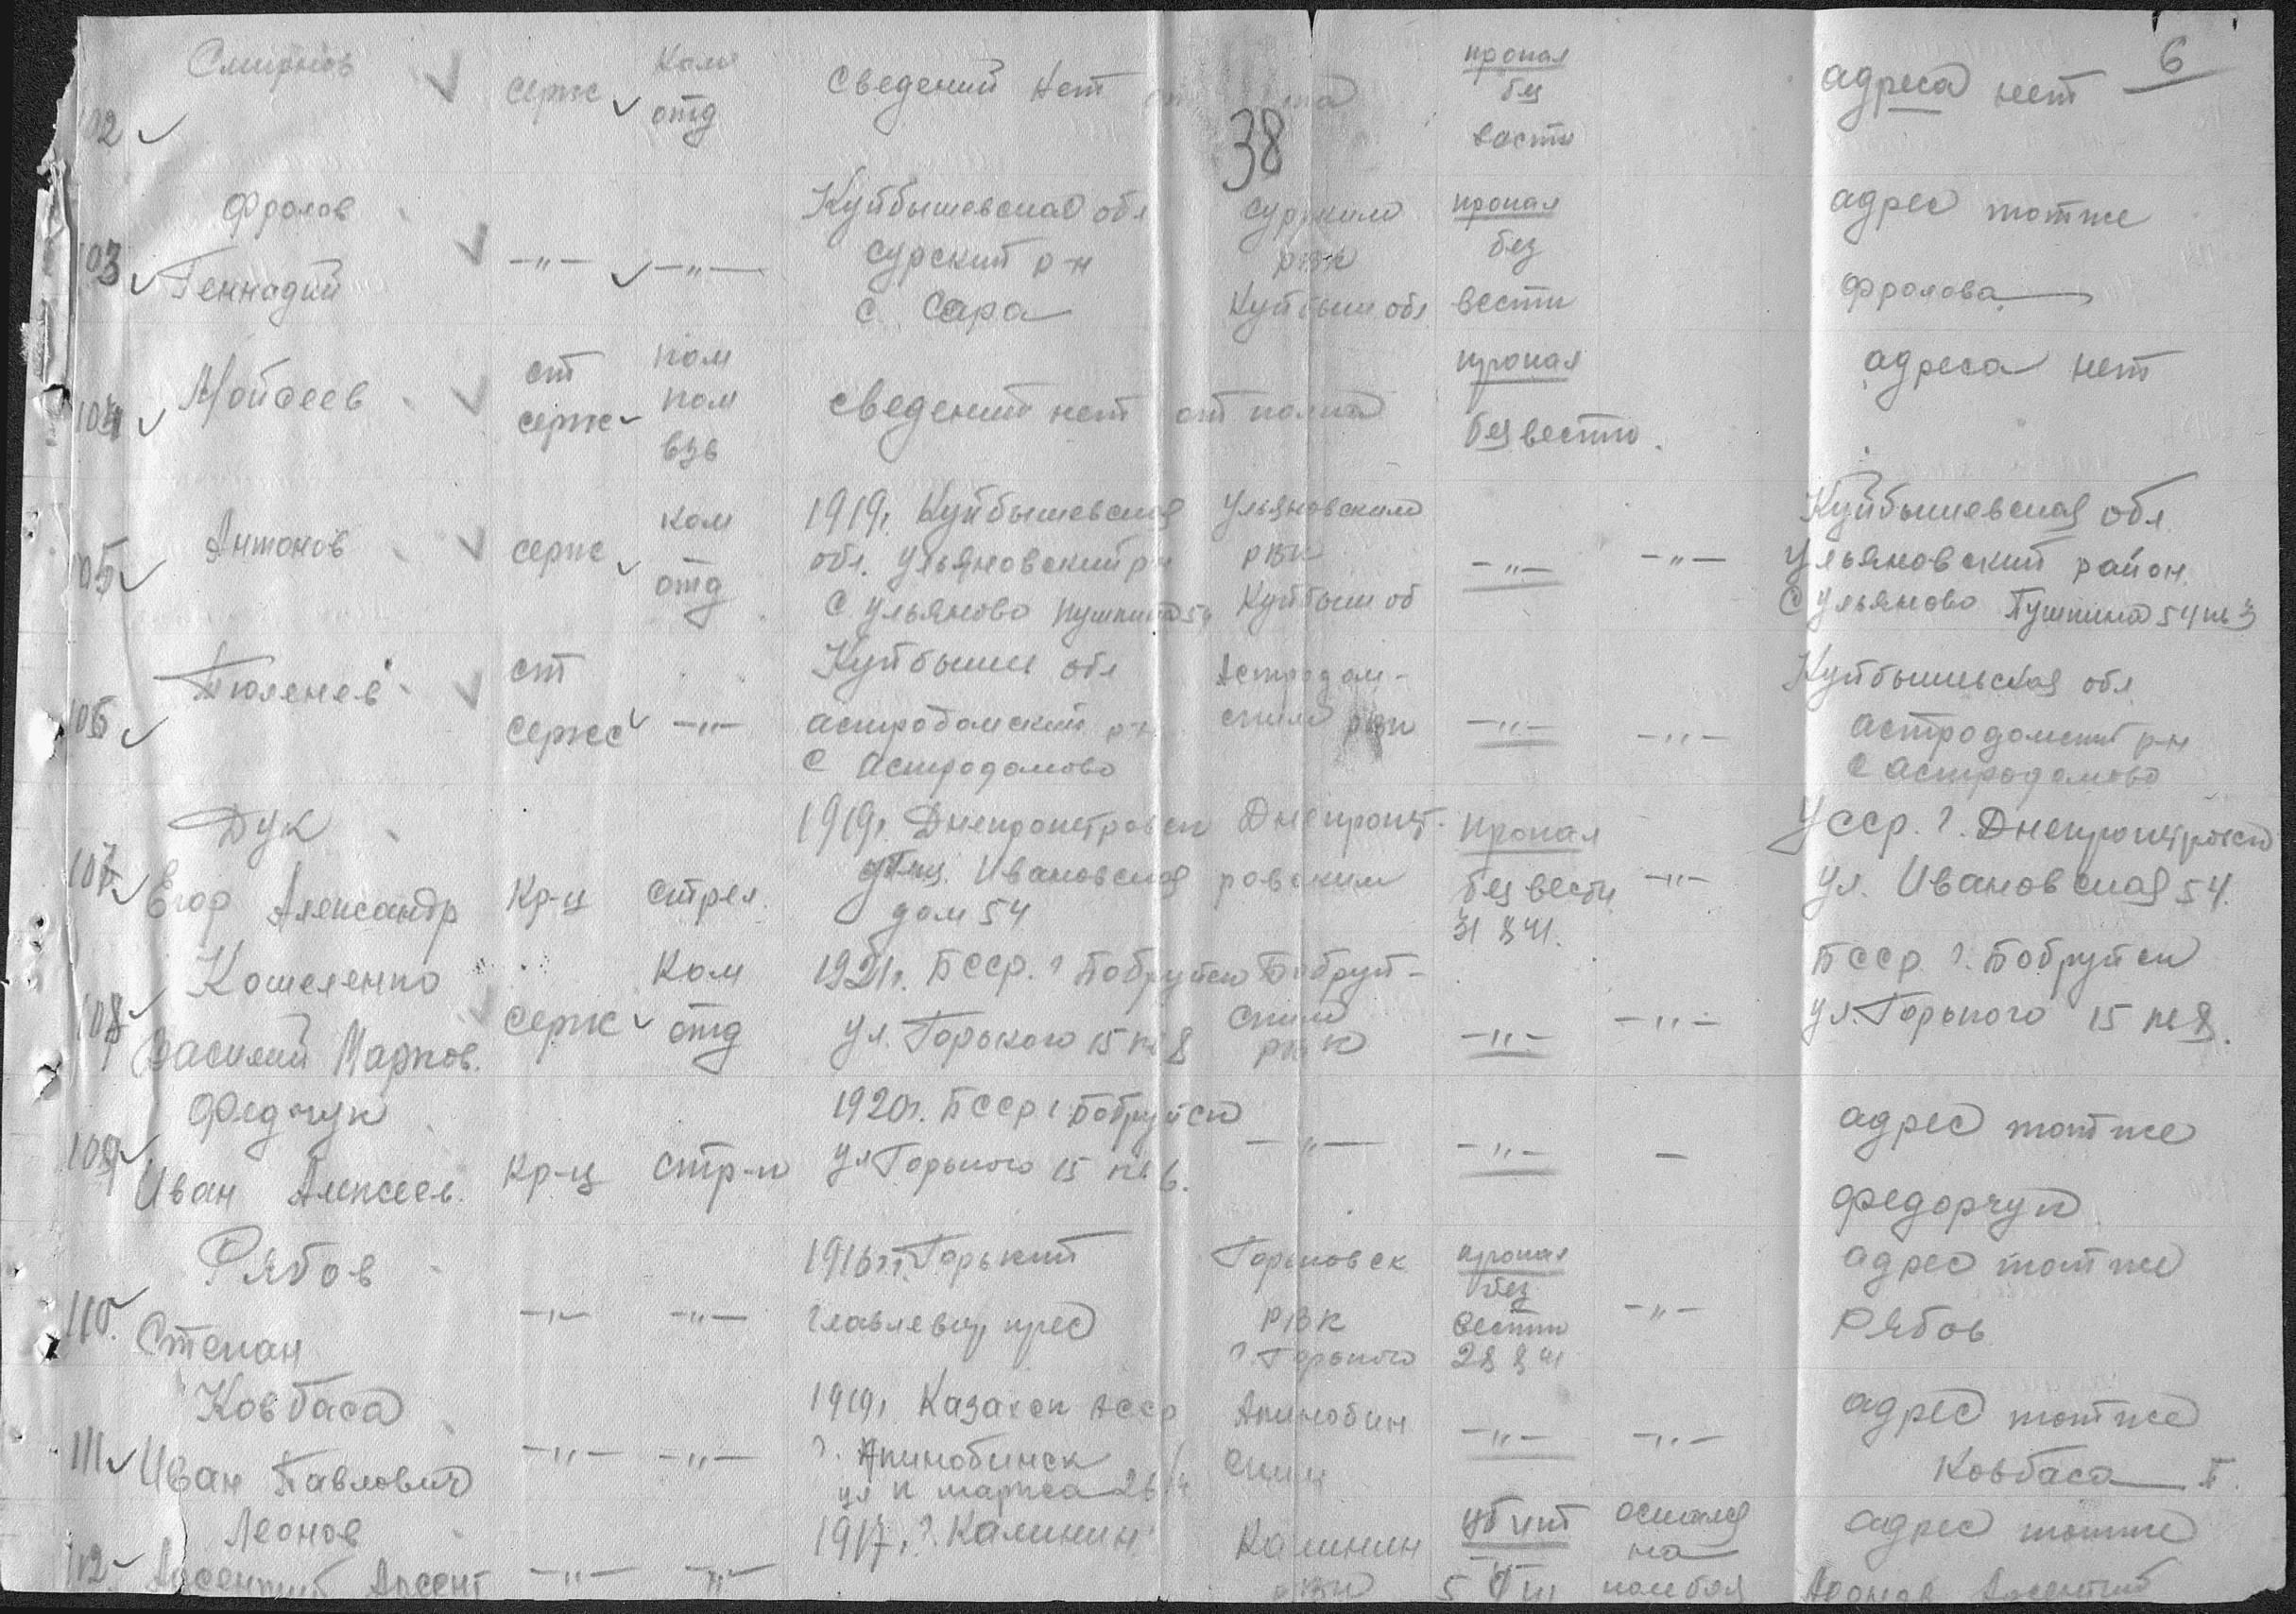 6
38
102 Смирнов серж ком отд сведений нет пропал без вести адреса нет
103 Фролов Геннадий -"- -"- Куйбышевская обл Сурский р-н с. Сара Сурским РВК Куйбыш обл пропал без вести адрес тот же Фролова
104 Мойсеев ст серж пом ком взв сведений нет от полка пропал без вести адреса нет
105 Антонов серж ком отд 1919г. Куйбышевская обл. Ульяновский р-н с. Ульяново Пушкина 54 Ульяновским РВК Куйбыш об -"- -"- Куйбышевская обл Ульяновский район с Ульяново Пушкина 54 кв 3
106 Тюленев ст серж -"- Куйбыши обл Астродомский р-н с Астродомово Астродом-ским РВК -"- -"- Куйбышевская обл Астродомский р-н с Астродомово
107 Дук Егор Александр кр-ц стрел. 1919г. Днепропетровск улиц. Ивановская дом 54 Днепропет-ровским пропал без вести 31 8 41. -"- УССР. г. Днепропетровск ул. Ивановская 54.
108 Кошеленко Василий Марков. серж ком отд 1921г. БССР. г Бобруйск ул. Горького 15 кв 8 Бобруй-ским РВК -"- -"- БССР г. Бобруйск ул. Горького 15 кв 8.
109 Федочук Иван Алексеев. кр-ц стр-к 1920г. БССР г Бобруйск ул Горького 15 кв 6. -"- -"- - адрес тот же Федорчук
110. Рябов Степан -"- -"- 1916г г. Горький РВК г. Горького пропал без вести 28 8 41 -"- адрес тот же Рябов
111 Ковбаса Иван Павлович -"- -"- 1919г Казахск АССР г. Акинобинск ул К маркса 26 Акинобин ским -"- -"- адрес тот же Ковбаса
112 Леонов -"- -"- 1917г. г. Калинин Калинин РВК убит остался на поле боя адрес тот же